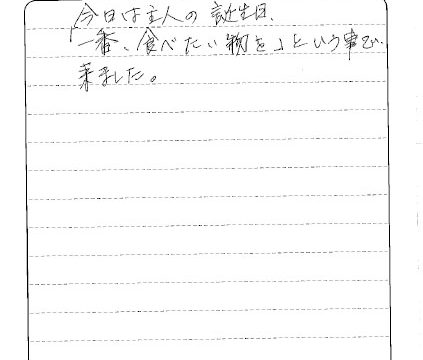 今日は主人の誕生日、
「一番、食べたい物を」という事で、
来ました。